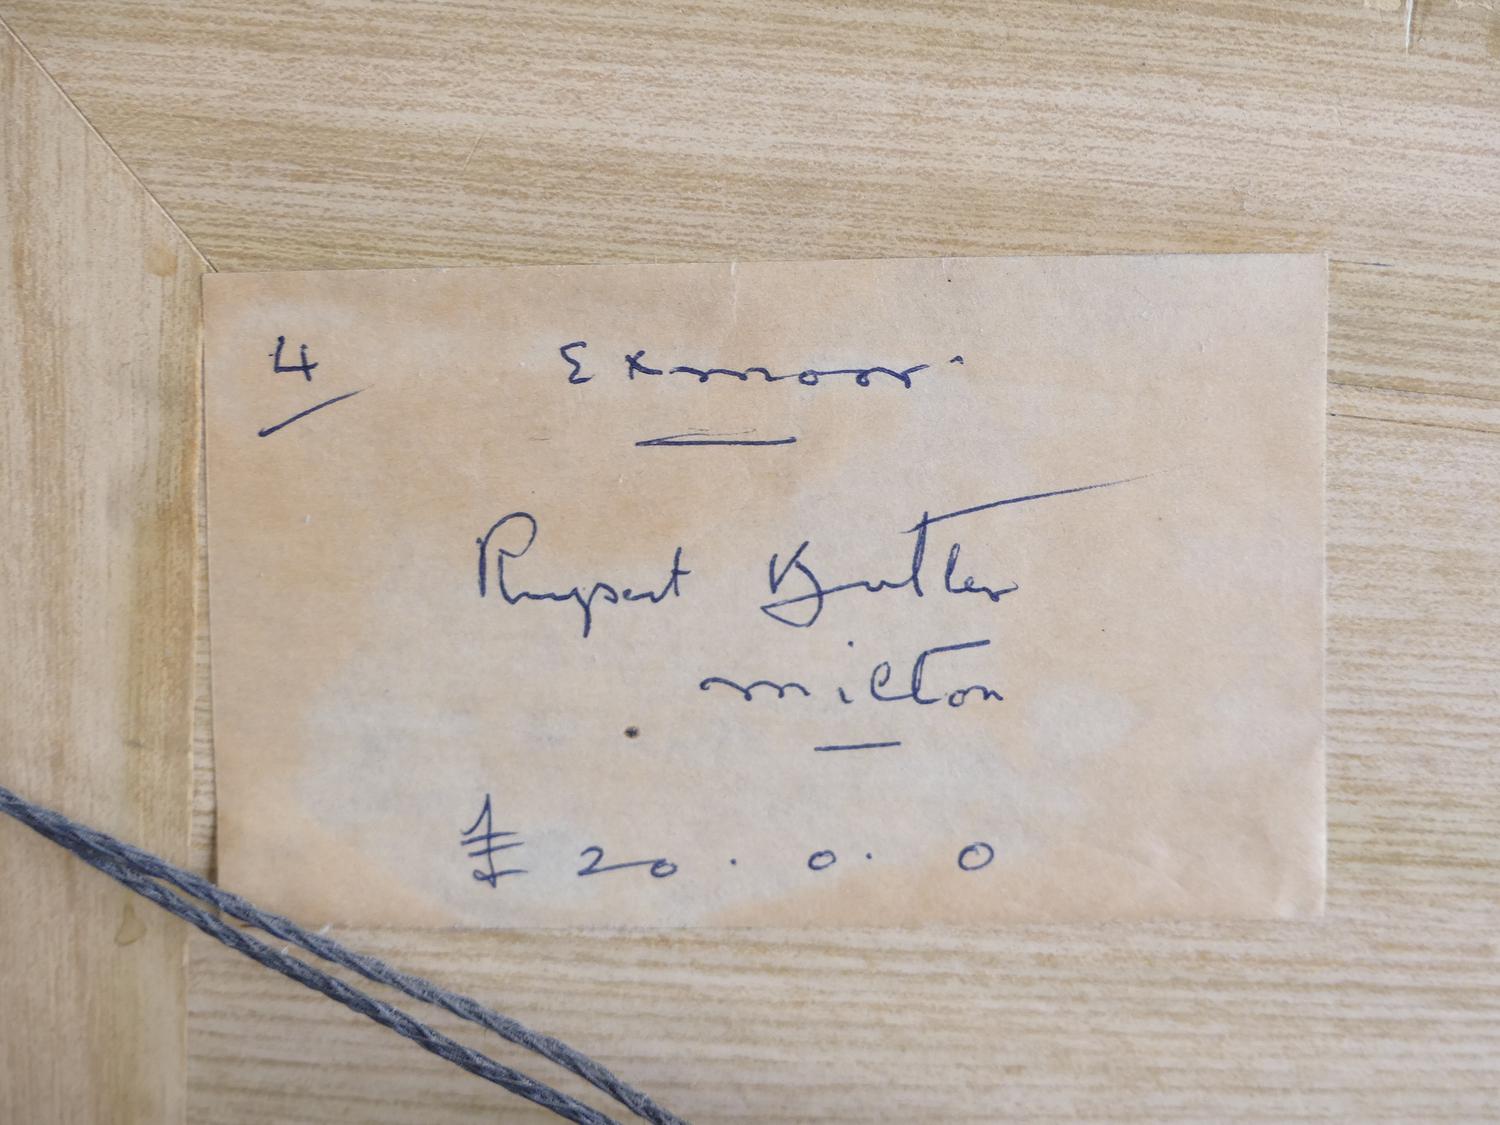 4 Exmoor.
Rupert Butler
Milton
£ 20 . 0 . 0